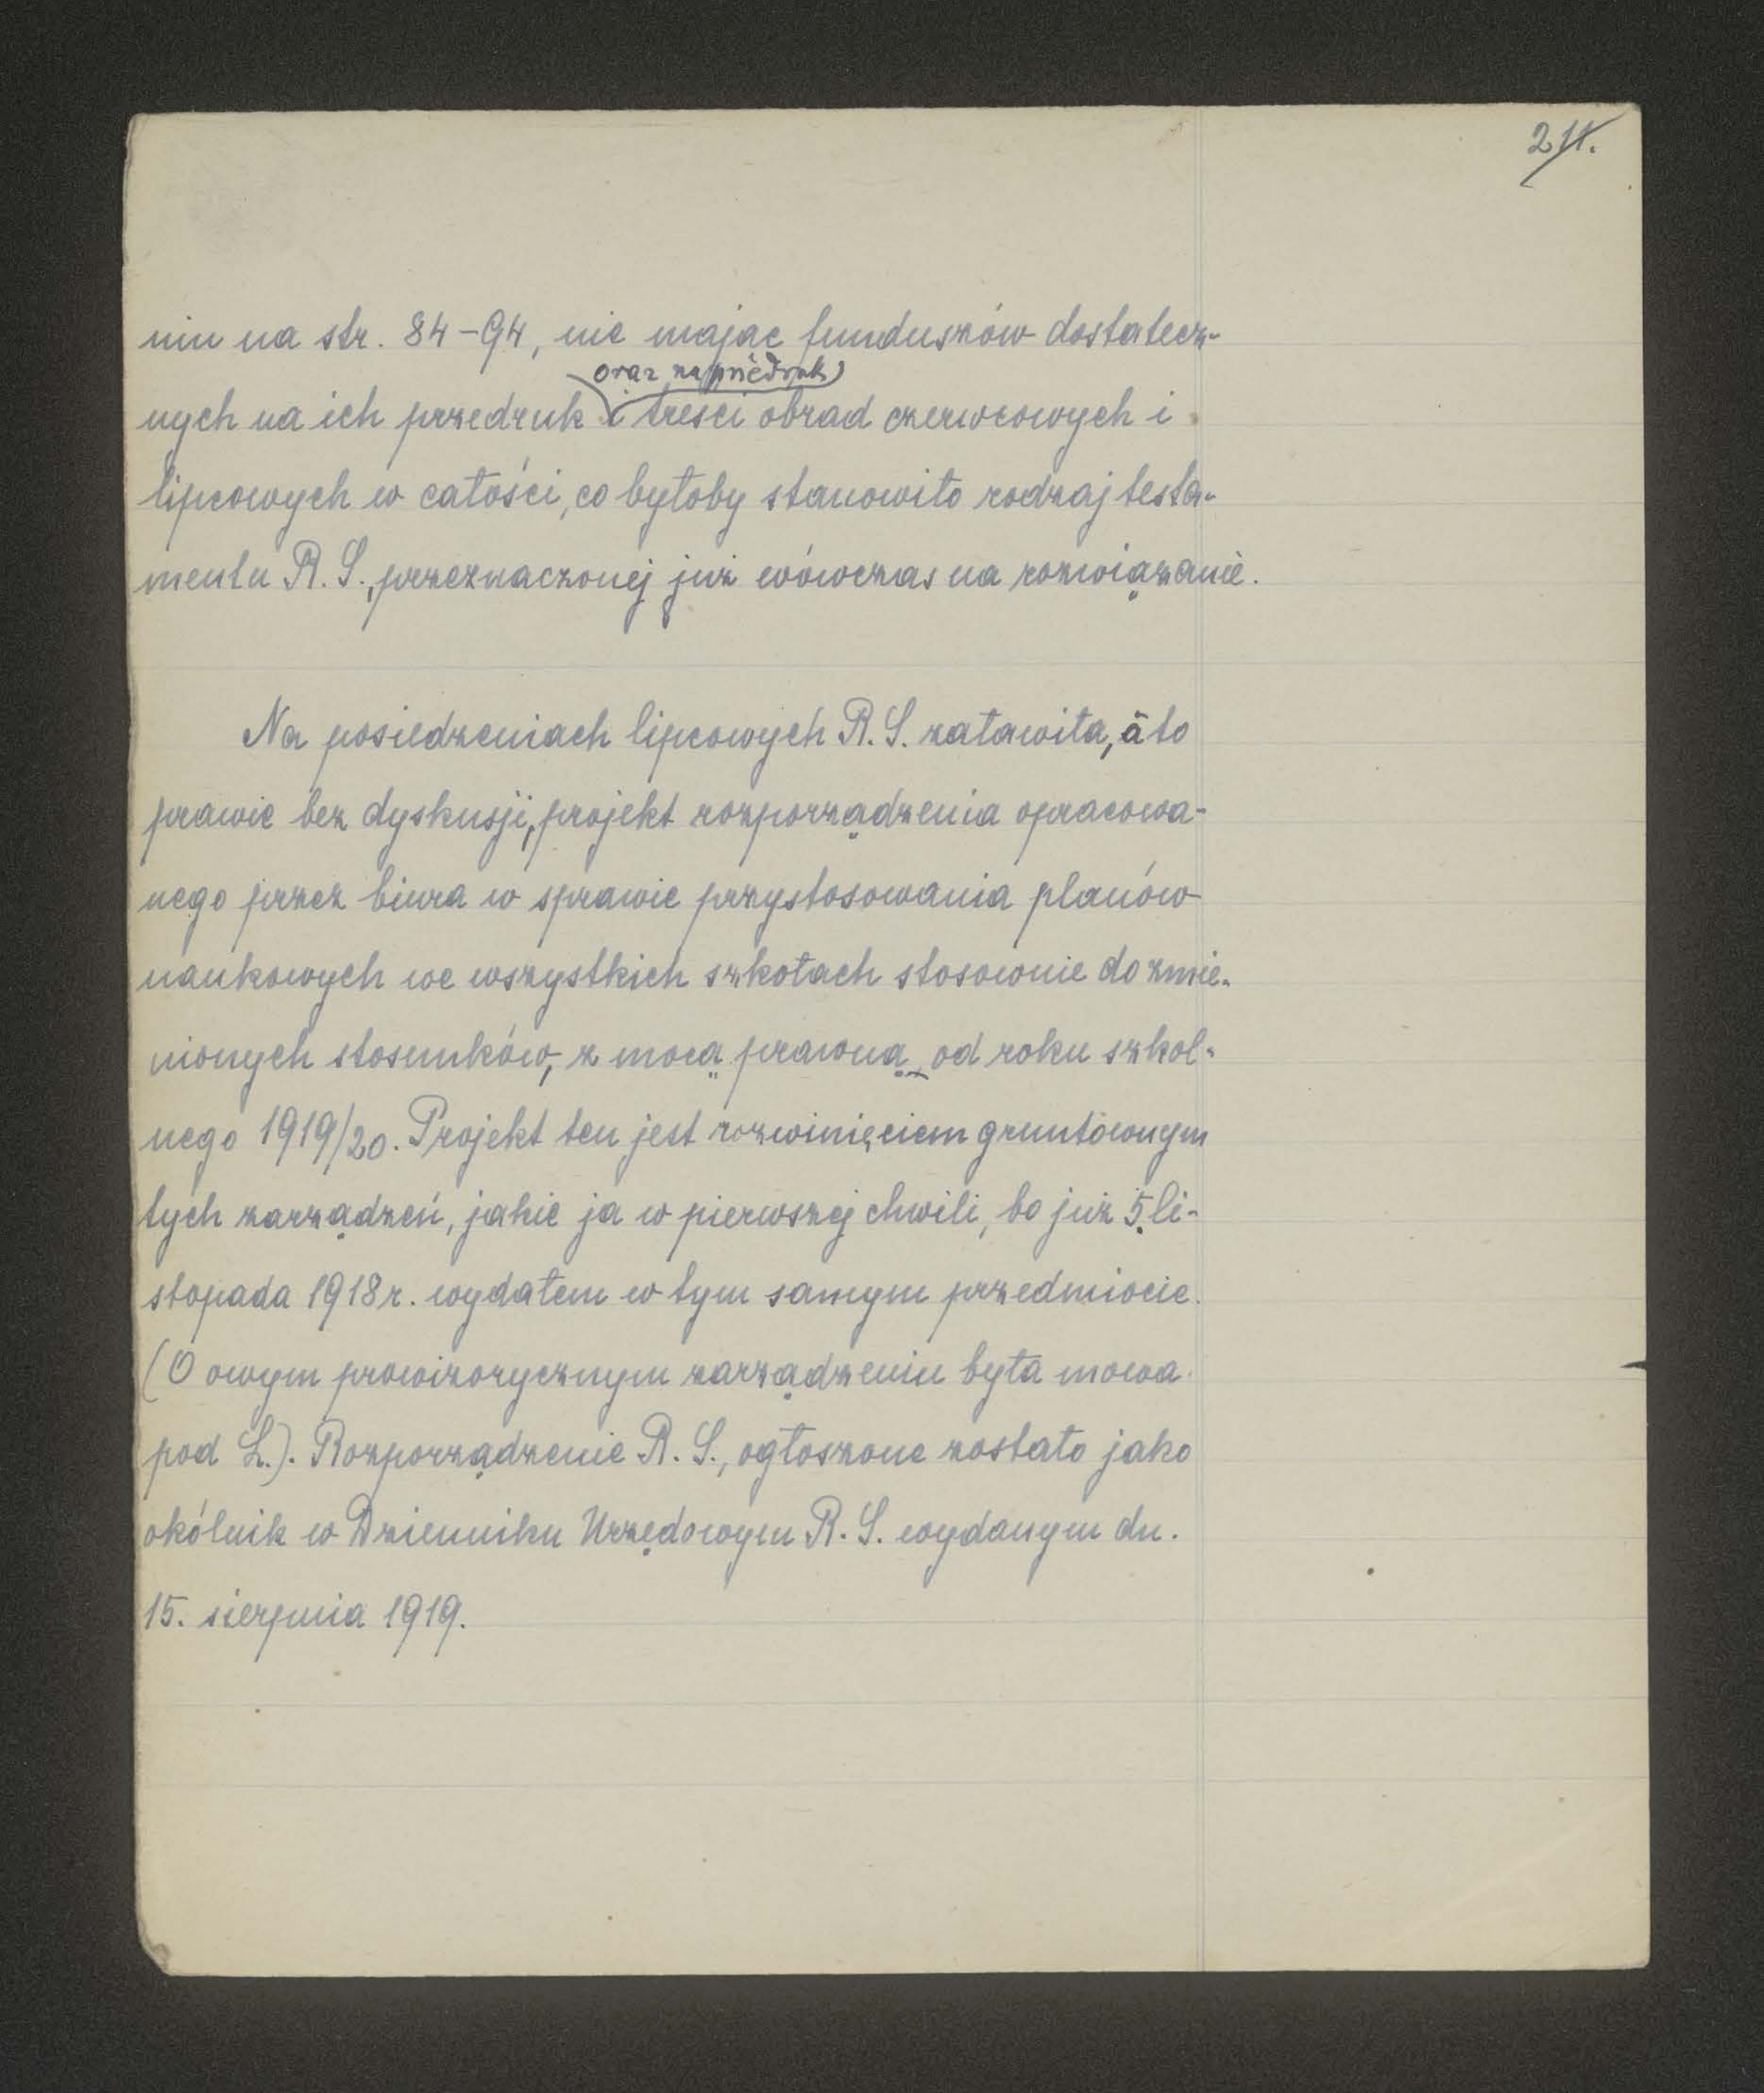 211.
niu na str. 84-94, nie mając funduszów dostatecz-
oraz na przedruk
nych na ich przedruk i treści obrad czerwcowych i
lipcowych w całości, co byłoby stanowiło rodzaj testa-
mentu R. S., przeznaczonej już wówczas na rozwiązanie.
Na posiedzeniach lipcowych R. S. załawiła, a to
prawie bez dyskusji, projekt rozporządzenia opracowa-
nego przez biura w sprawie przystosowania planów
naukowych we wszystkich szkołach stosownie do zmie-
nionych stosunków, z mocą prawną od roku szkol-
nego 1919/20. Projekt ten jest rozwinięciem gruntownym
tych zarządzeń, jakie ja w pierwszej chwili, bo już 5 li-
stopada 1918 r. wydałem w tym samym przedmiocie.
(O owym prowizorycznym zarządzeniu była mowa
pod L.). Rozporządzenie R. S., ogłoszone zostało jako
okólnik w Dzienniku Urzędowym R. S. wydanym dn.
15. sierpnia 1919.